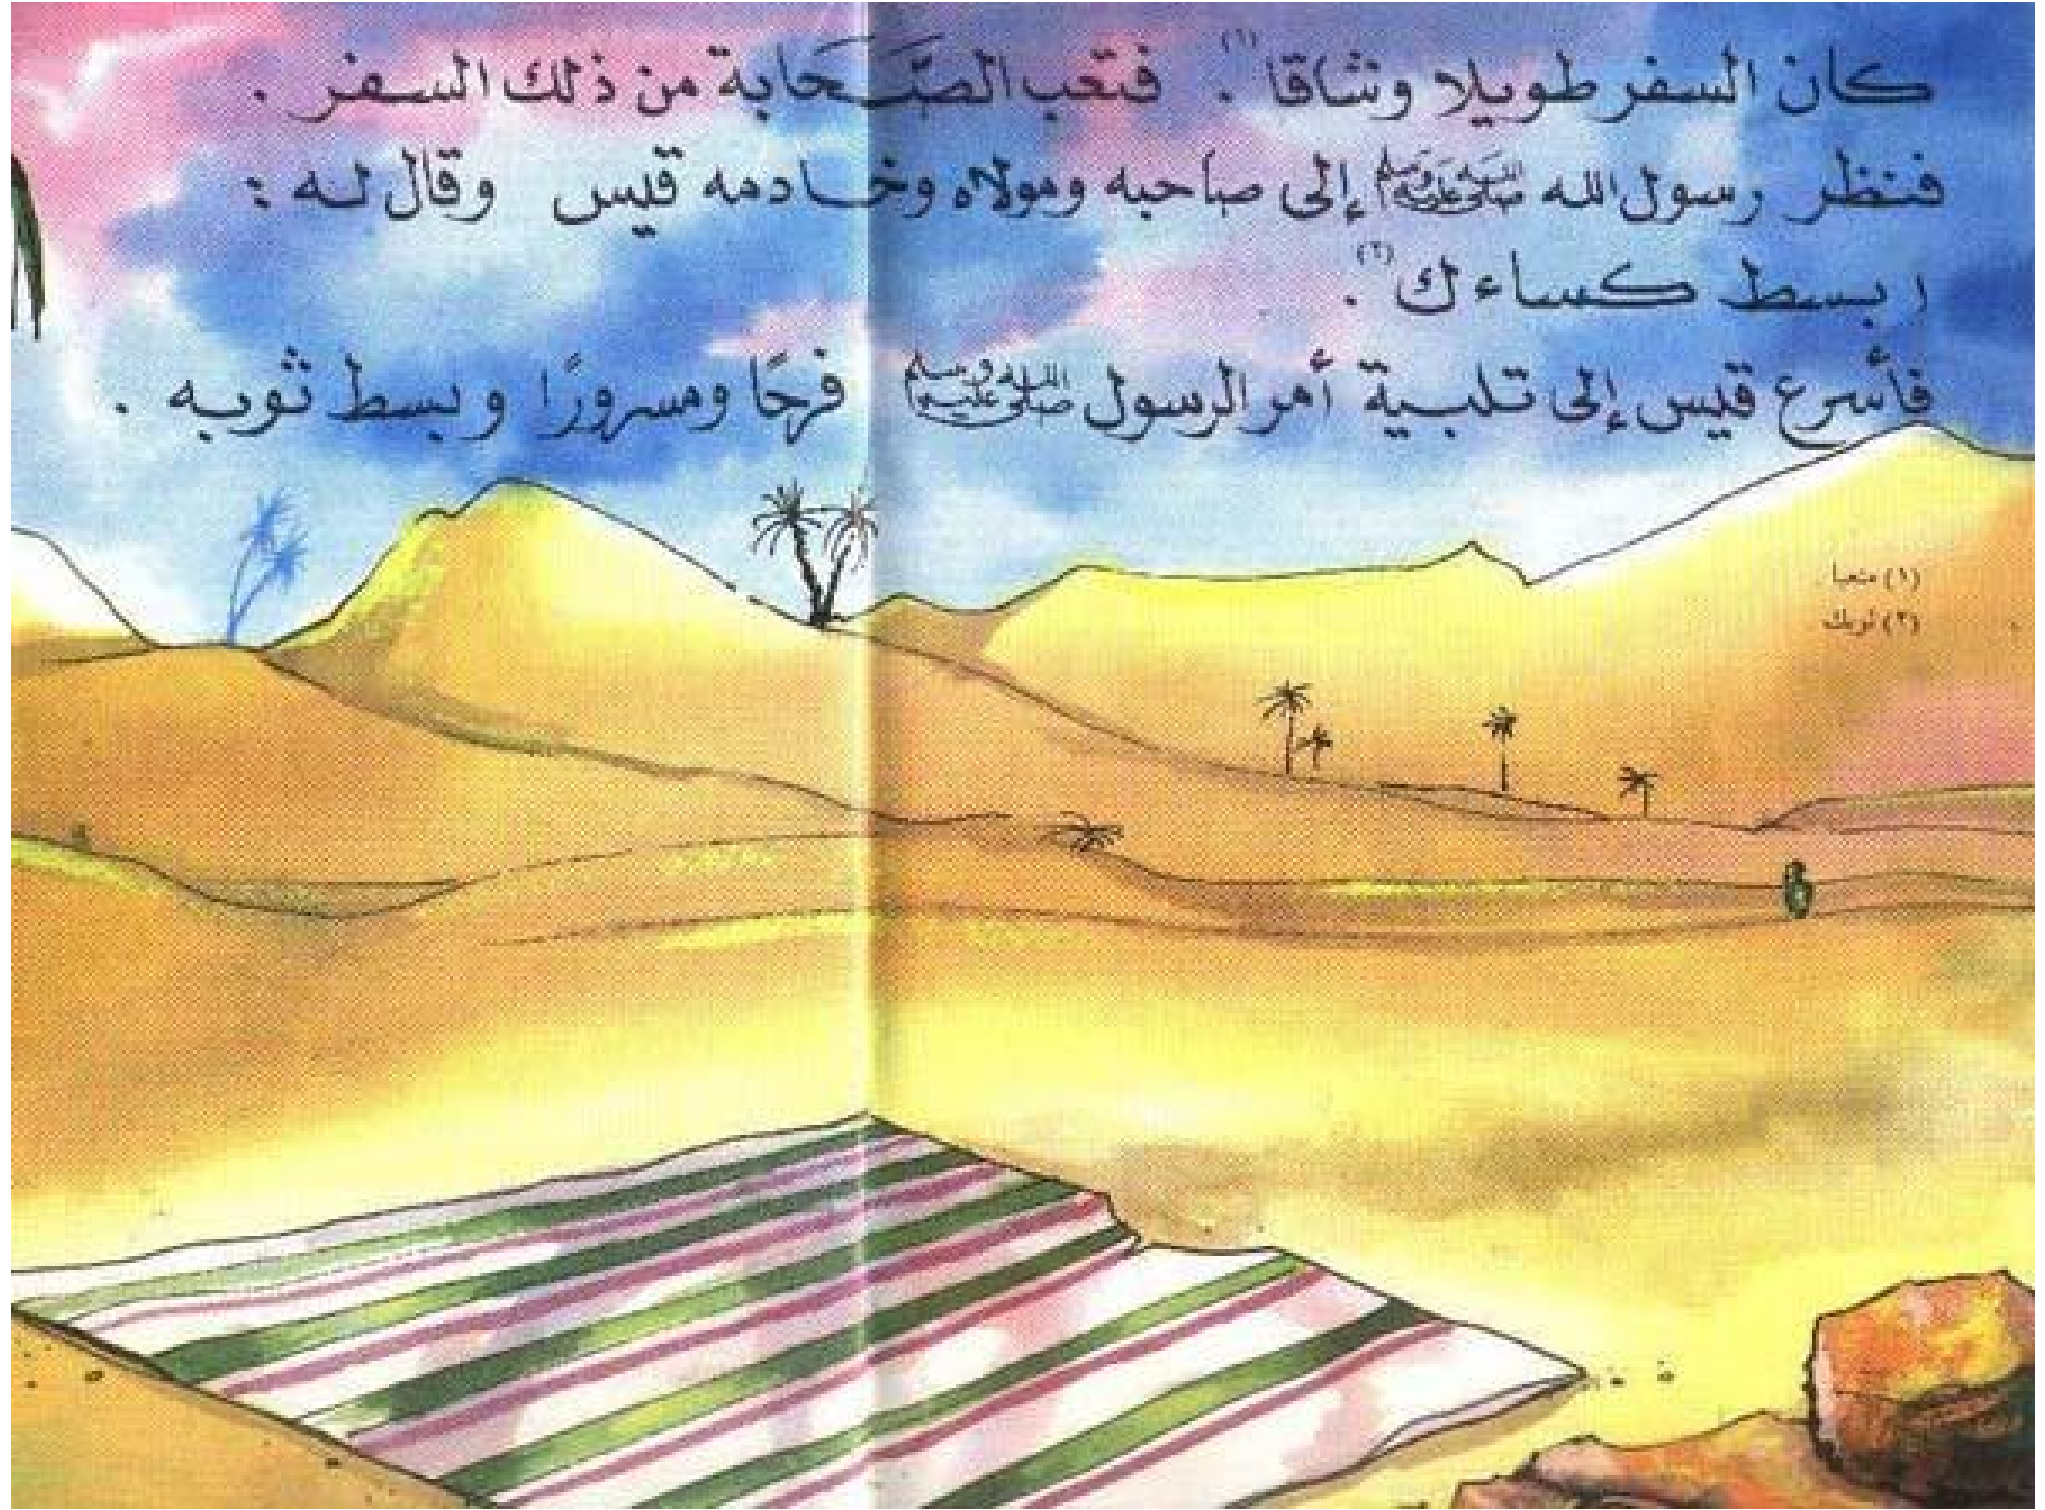 كان السفر طويلا وشاقا (١) . فتعب الصّحابة من ذلك السفر .
فنظر رسول الله ﷺ إلى صاحبه ومولاه وخادمه قيس وقال له :
ابسط كساءك (٢) .
فأسرع قيس إلى تلبية أمر الرسول ﷺ فرحًا ومسرورًا وبسط ثوبه .
(١) متعبا .
(٢) ثوبك